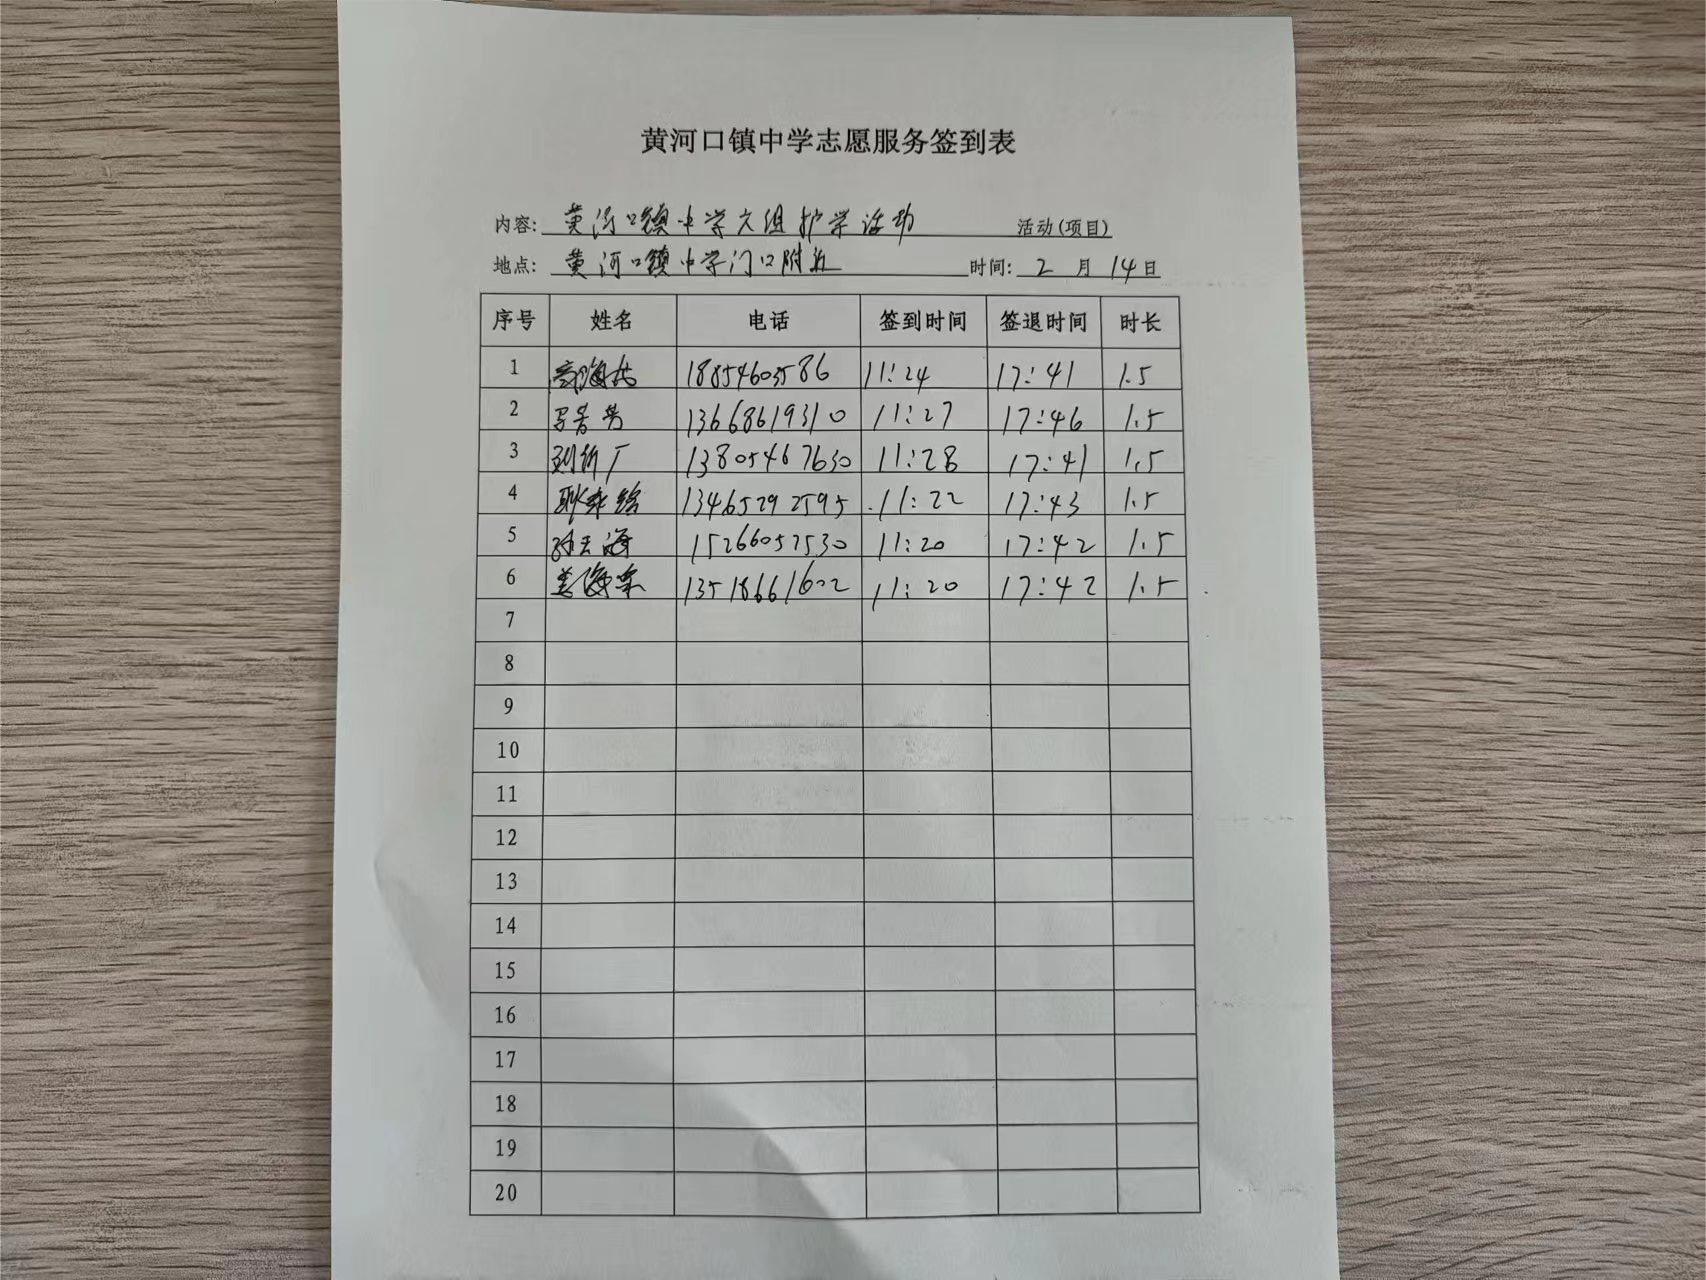 黄河口镇中学志愿服务签到表
内容: 黄河口镇中学六组护学活动 活动(项目)
地点: 黄河口镇中学门口附近 时间: 2 月 14 日
序号 姓名 电话 签到时间 签退时间 时长
1 18854603586 11:24 17:41 1.5
2 13668619310 11:27 17:46 1.5
3 13805467630 11:28 17:41 1.5
4 13465292595 11:22 17:43 1.5
5 15266057530 11:20 17:42 1.5
6 姜海荣 13518661602 11:20 17:42 1.5
7
8
9
10
11
12
13
14
15
16
17
18
19
20